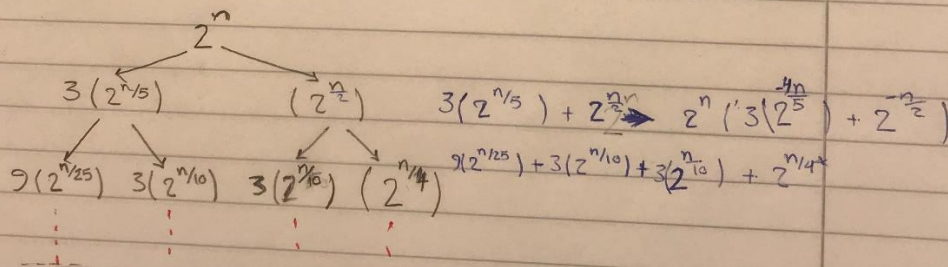 2^n
3(2^{n/5}) (2^{n/2}) 3(2^{n/5}) + 2^{n/2} → 2^n (3(2^{-4n/5}) + 2^{-n/2})
9(2^{n/25}) 3(2^{n/10}) 3(2^{n/10}) (2^{n/4}) 9(2^{n/25}) + 3(2^{n/10}) + 3(2^{n/10}) + 2^{n/4}